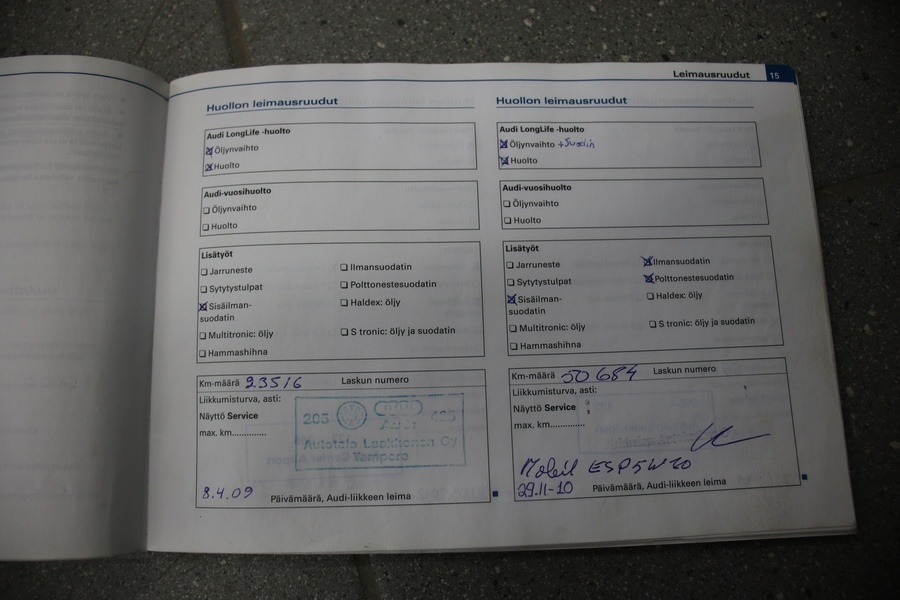 Leimausruudut 15
Huollon leimausruudut
Audi LongLife -huolto
Öljynvaihto
Huolto
Audi-vuosihuolto
Öljynvaihto
Huolto
Lisätyöt
Jarruneste
Ilmansuodatin
Sytytystulpat
Polttonestesuodatin
Sisäilman-
suodatin
Haldex: öljy
Multitronic: öljy
S tronic: öljy ja suodatin
Hammashihna
Km-määrä 23516 Laskun numero
Liikkumisturva, asti:
Näyttö Service
max. km.............
205 Audi 425
Autotalo Laakkonen Oy
Tampere
8.4.09 Päivämäärä, Audi-liikkeen leima
Huollon leimausruudut
Audi LongLife -huolto
Öljynvaihto + Suodin
Huolto
Audi-vuosihuolto
Öljynvaihto
Huolto
Lisätyöt
Jarruneste
Ilmansuodatin
Sytytystulpat
Polttonestesuodatin
Sisäilman-
suodatin
Haldex: öljy
Multitronic: öljy
S tronic: öljy ja suodatin
Hammashihna
Km-määrä 50684 Laskun numero
Liikkumisturva, asti:
Näyttö Service
max. km.............
Mobil ESP 5W30
29.11-10 Päivämäärä, Audi-liikkeen leima